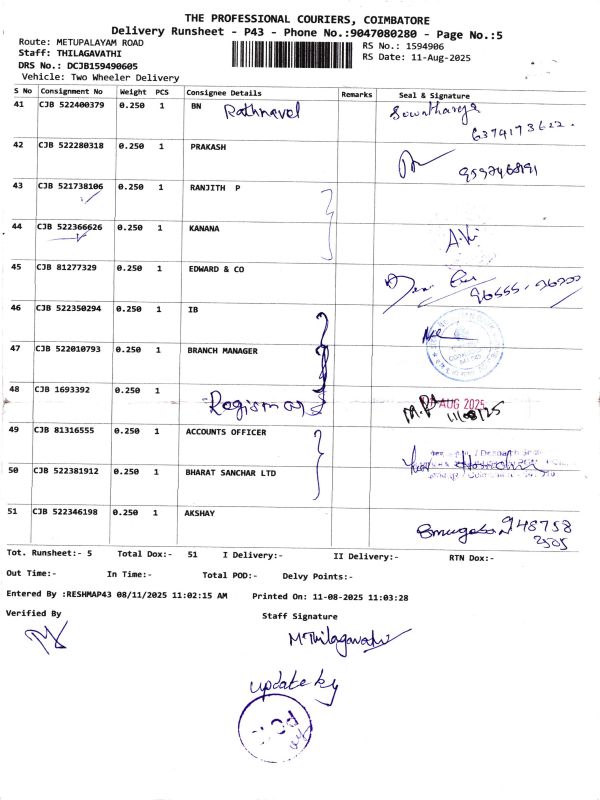 THE PROFESSIONAL COURIERS, COIMBATORE
Delivery Runsheet - P43 - Phone No.:9047080280 - Page No.:5
Route: METUPALAYAM ROAD
RS No.: 1594906
Staff: THILAGAVATHI
RS Date: 11-Aug-2025
DRS No.: DCJB159490605
Vehicle: Two Wheeler Delivery
S No Consignment No Weight PCS Consignee Details Remarks Seal & Signature
41 CJB 522400379 0.250 1 BN Rathnavel Sowntharya
6374173622.
42 CJB 522280318 0.250 1 PRAKASH
43 CJB 521738106 0.250 1 RANJITH P
44 CJB 522366626 0.250 1 KANANA
45 CJB 81277329 0.250 1 EDWARD & CO
46 CJB 522350294 0.250 1 IB
47 CJB 522010793 0.250 1 BRANCH MANAGER
48 CJB 1693392 0.250 1
AUG 2025
11/08/25
49 CJB 81316555 0.250 1 ACCOUNTS OFFICER
50 CJB 522381912 0.250 1 BHARAT SANCHAR LTD
51 CJB 522346198 0.250 1 AKSHAY
948758
2505
Tot. Runsheet:- 5 Total Dox:- 51 I Delivery:- II Delivery:- RTN Dox:-
Out Time:- In Time:- Total POD:- Delvy Points:-
Entered By :RESHMAP43 08/11/2025 11:02:15 AM Printed On: 11-08-2025 11:03:28
Verified By Staff Signature
M Thilagavathi
update by